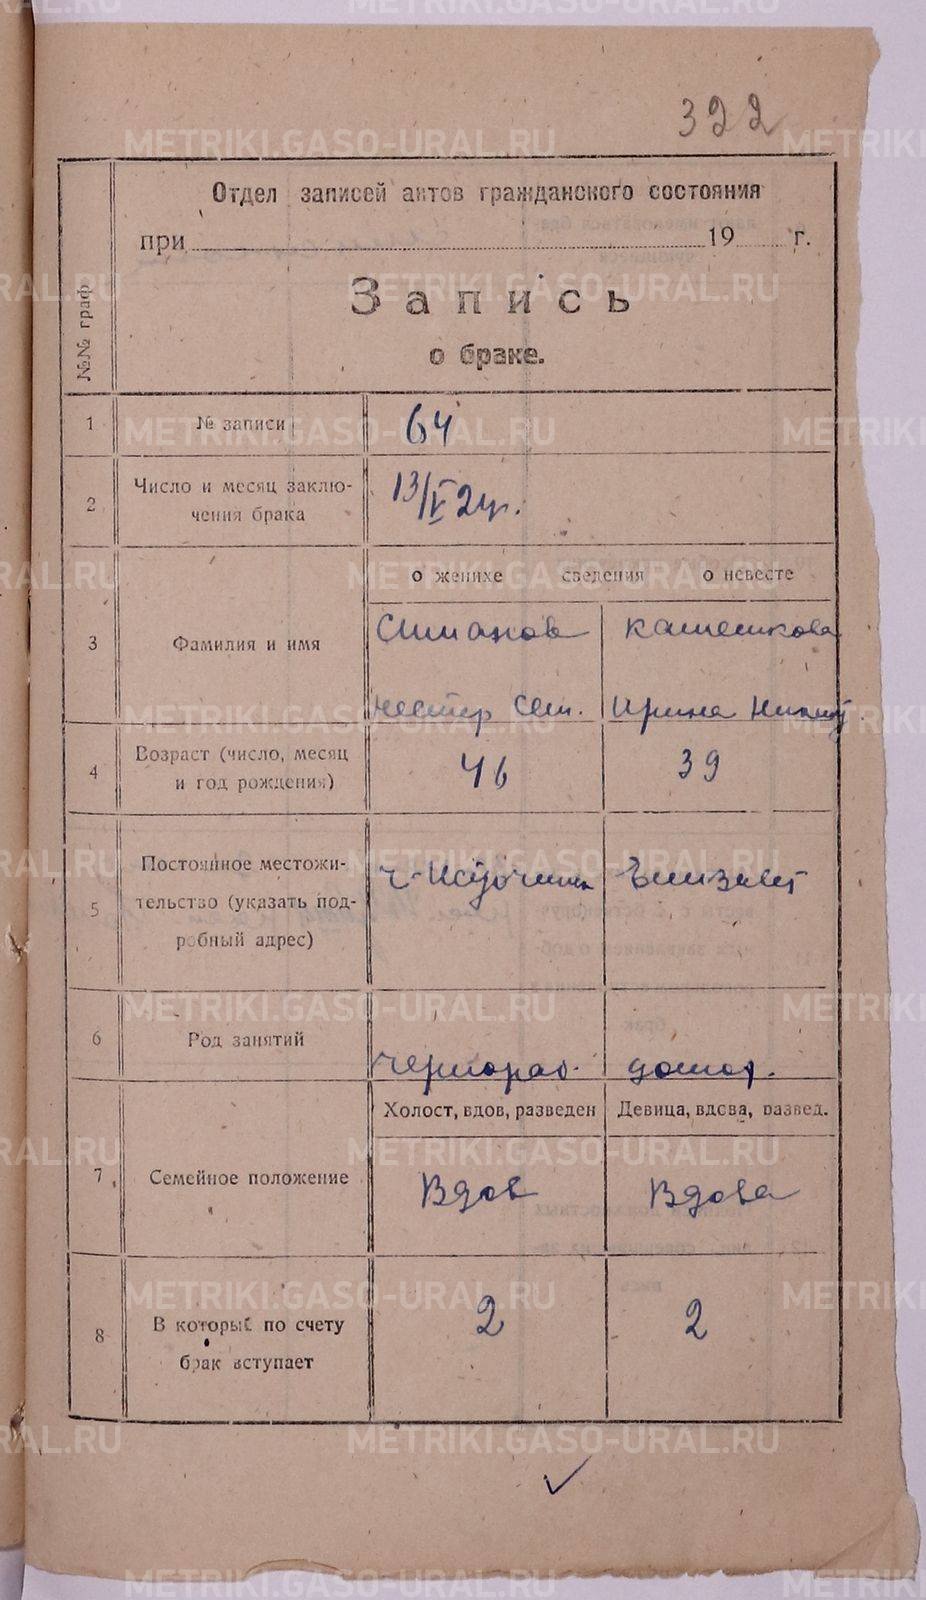 322
Отдел записей актов гражданского состояния
при 19 г.
Запись
о браке.
№№ граф
1 № записи 64
2 Число и месяц заклю-
чения брака 13/V 24г.
о женихе сведения о невесте
3 Фамилия и имя Симанов
Нестер Сем. Ирина
4 Возраст (число, месяц
и год рождения) 46 39
5 Постоянное местожи-
тельство (указать под-
робный адрес)
6 Род занятий чернораб. домох.
Холост, вдов, разведен Девица, вдова, развед.
7 Семейное положение Вдов Вдова
8 В который по счету
брак вступает 2 2
METRIKI.GASO-URAL.RU